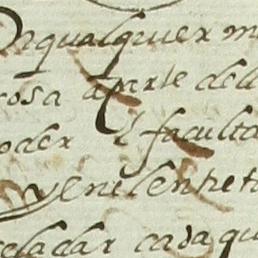 Dequalquier m
cosa aparte dela
oder l faculta
venelenpeti
eladar cada qu